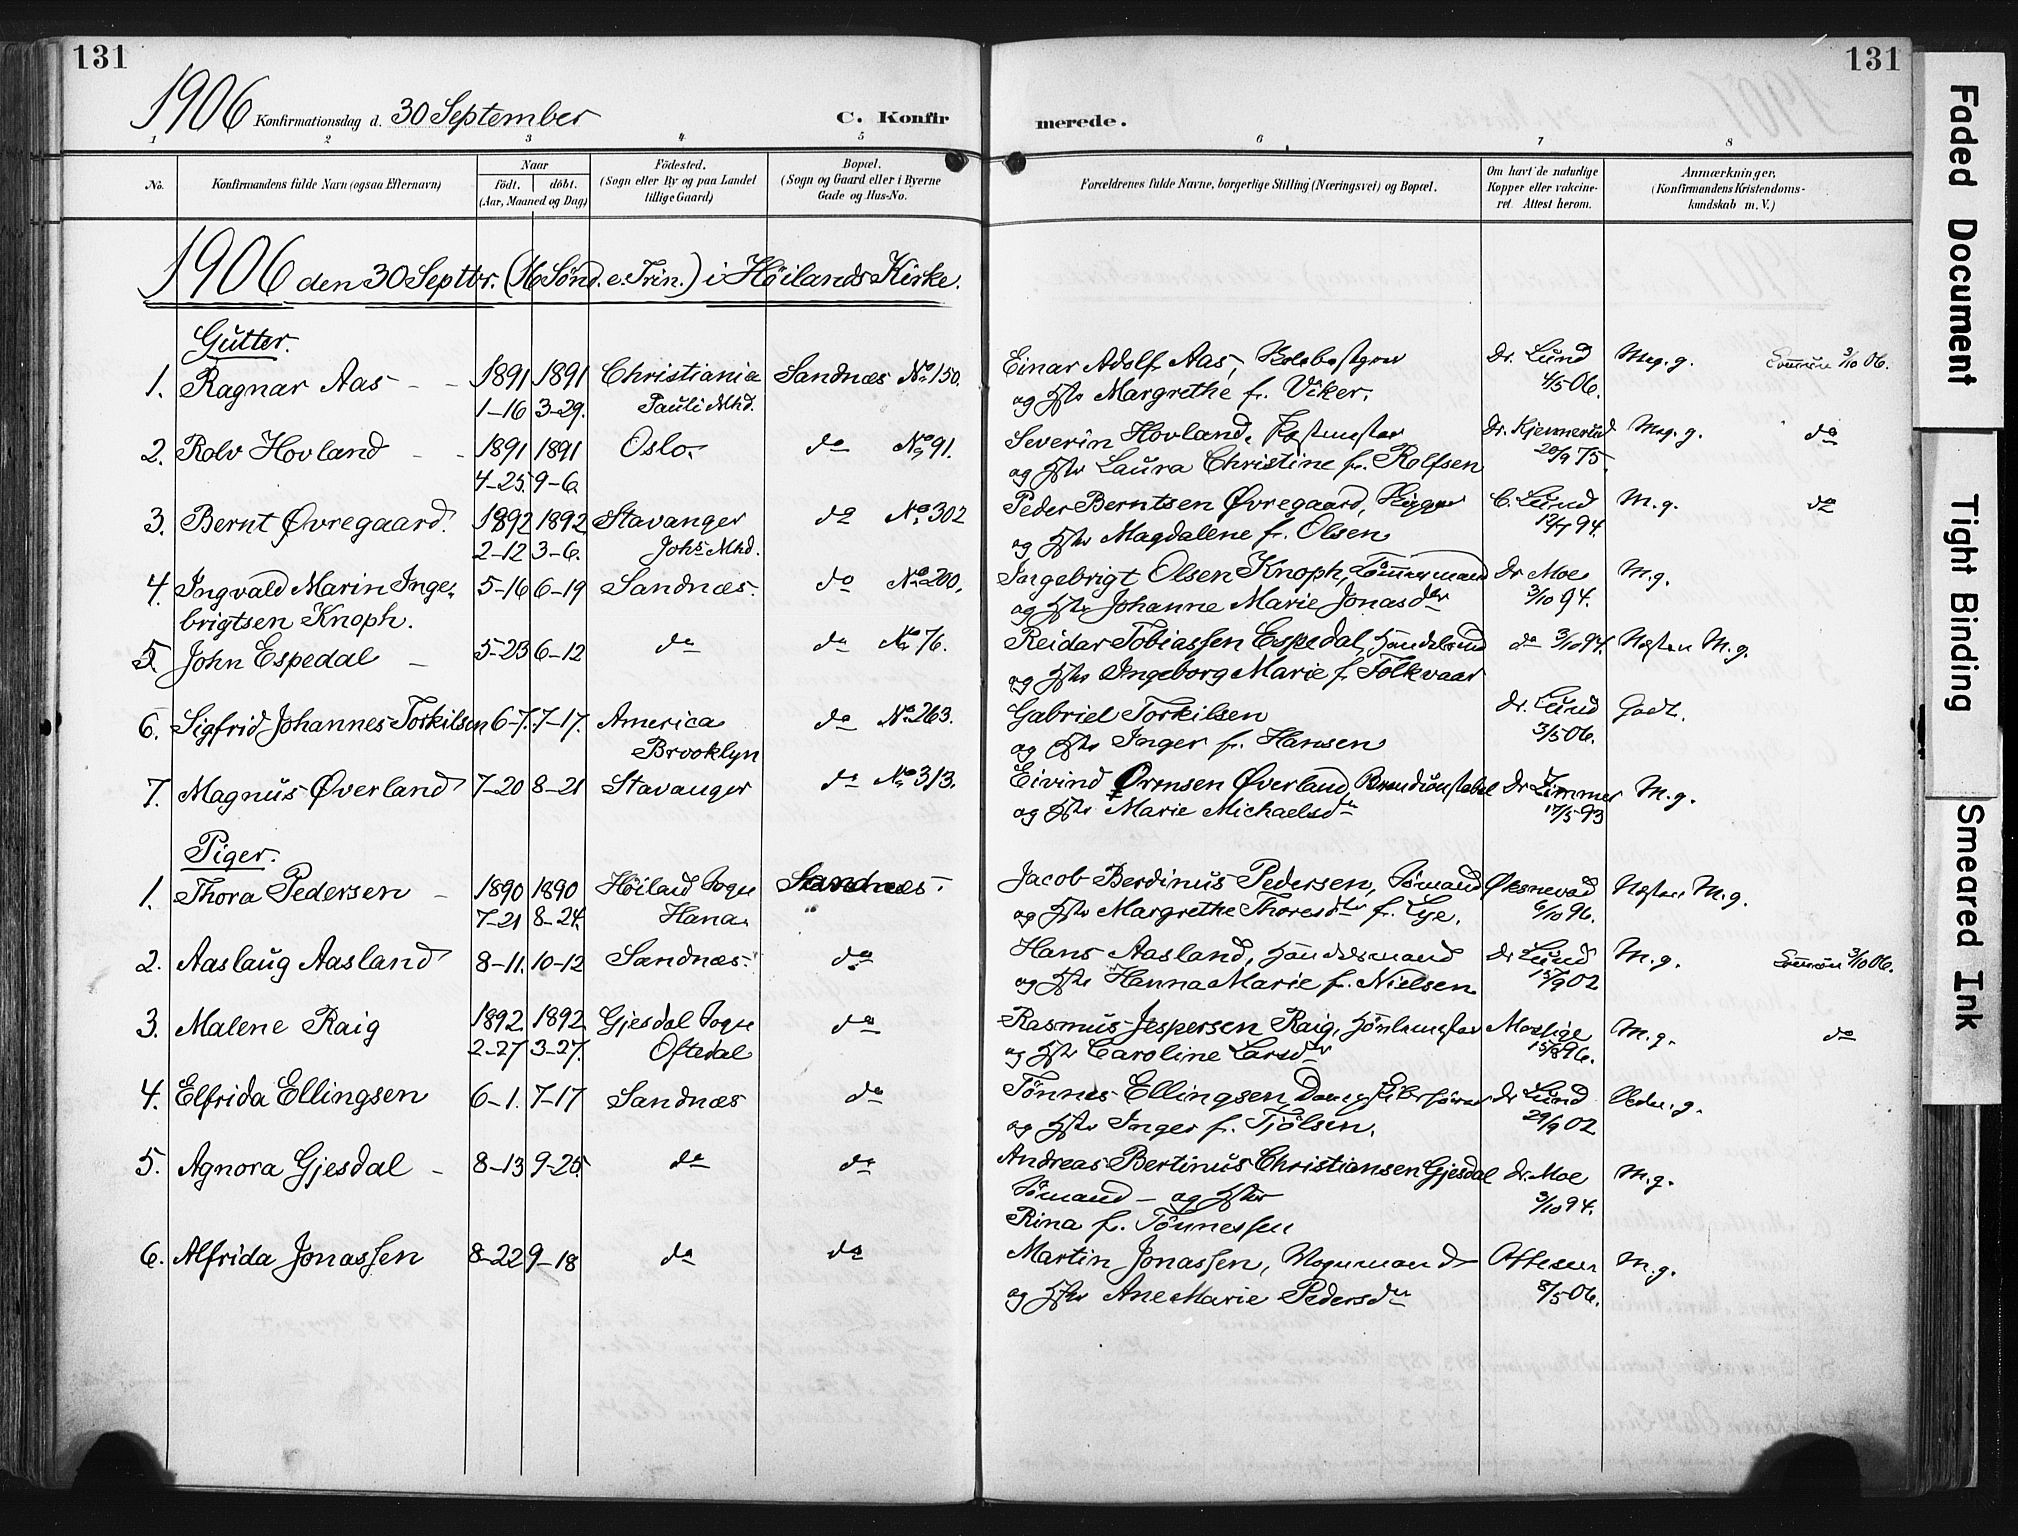 131
131
1906 Konfirmationsdag d. 30 September
C. Konfir
merede.
1 2 3 4 5 6 7 8
No.
Konfirmandens fulde Navn (ogsaa Efternavn)
Naar
født. døbt.
(Aar, Maaned og Dag)
Fødested.
(Sogn eller By og paa Landet
tillige Gaard)
Bopæl.
(Sogn og Gaard eller i Byerne
Gade og Hus-No.
Forældrenes fulde Navne, borgerlige Stilling (Næringsvei) og Bopæl.
Om havt de naturlige
Kopper eller vakcine-
ret. Attest herom.
Anmærkninger.
(Konfirmandens Kristendoms-
kundskab m. V.)
1906 den 30 Septbr. (16 Sønd. e. Trin.) i Höilands Kirke.
Gutter.
1. Ragnar Aas - - 1891 1891 Christiania Sandnæs No 150. Einar Adolf Aas, Dr. Lund Meg. g. 3/10 06.
1-16 3-29. Pauli Mhd. og Hstr Margrethe f. Viker. 4/5 06.
2. Rolv Hovland - - 1891 1891 Oslo. do No 91. Severin Hovland, Dr. Kjennerud Meg. g. do
4-25 9-6 og Hstr Laura Christine f. Rolfsen 20/9 75.
3. Bernt Øvregaard. 1892 1892 Stavanger do No 302 Peder Berntsen Øvregaard, C. Lund M. g. do
2-12 3-6. Johs Mhd. og Hstr Magdalene f. Olsen 94.
4. Ingvald Marin Inge- 5-16 6-19 Sandnæs. do No 200. Ingebrigt Olsen Knoph, Tömmermand Dr Moe M. g.
brigtsen Knoph. og Hstr Johanne Marie Jonasdtr 3/10 94.
5. John Espedal - 5-23 6-12 do do No 76. Reidar Tobiassen Espedal, do 3/10 94. Næsten M. g.
og Hstr Ingeborg Marie f. Folkvaar
6. Sigfrid Johannes Torkilsen 6-7. 7-17. America do No 263. Gabriel Torkilsen Dr. Lund Godt.
Brooklyn og Hstr Inger f. Hansen 3/5 06.
7. Magnus Øverland 7-20 8-21 Stavanger do No 313. Eivind Ørensen Øverland, Brandkonstabel Dr Zimmer M. g.
og Hstr Marie Michaelsdr 17/5 93
Piger.
1. Thora Pedersen - 1890 1890 Höiland Sogn Sandnæs. Jacob Berdinus Pedersen, Sömand Øksnevad Næsten M. g.
7-21 8-24. Hana. " og Hstr Margrethe Thoresdtr f. Lye. 6/10 96.
2. Aaslaug Aasland 8-11. 10-12 Sandnæs. do Hans Aasland, Handelsmand Dr Lund M. g. 3/10 06.
og Hstr Hanna Marie f. Nielsen 15/9 02
3. Malene Raig 1892 1892 Gjesdal Sogn do Rasmus Jespersen Raig, Mossige M. g. do
2-27 3-27. Oftedal og Hstr Caroline Larsdr 15/8 96.
4. Elfrida Ellingsen 6-1. 7-17 Sandnæs do Tönnes Ellingsen, Dampskibsförer Dr Lund
og Hstr Inger f. Tjölsen. 29/9 02
5. Agnora Gjesdal - 8-13 9-25 do do Andreas Bertinus Christiansen Gjesdal Dr. Moe M. g.
Sömand - og Hstr 3/10 94.
Rina f. Tönnessen
6. Alfrida Jonassen 8-22 9-18 do do Martin Jonassen, Vognmand Oftesen M. g.
og Hstr Ane Marie Pedersdtr 8/5 06.
Faded Document
Tight Binding
Smeared Ink